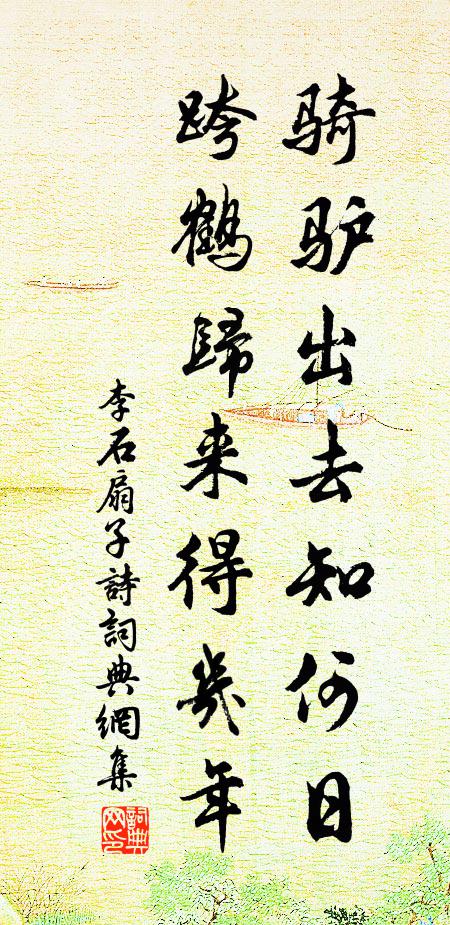 骑驴出去知何日
跨鹤歸来得幾年
李石扇子詩詞典網集
詞典
网印